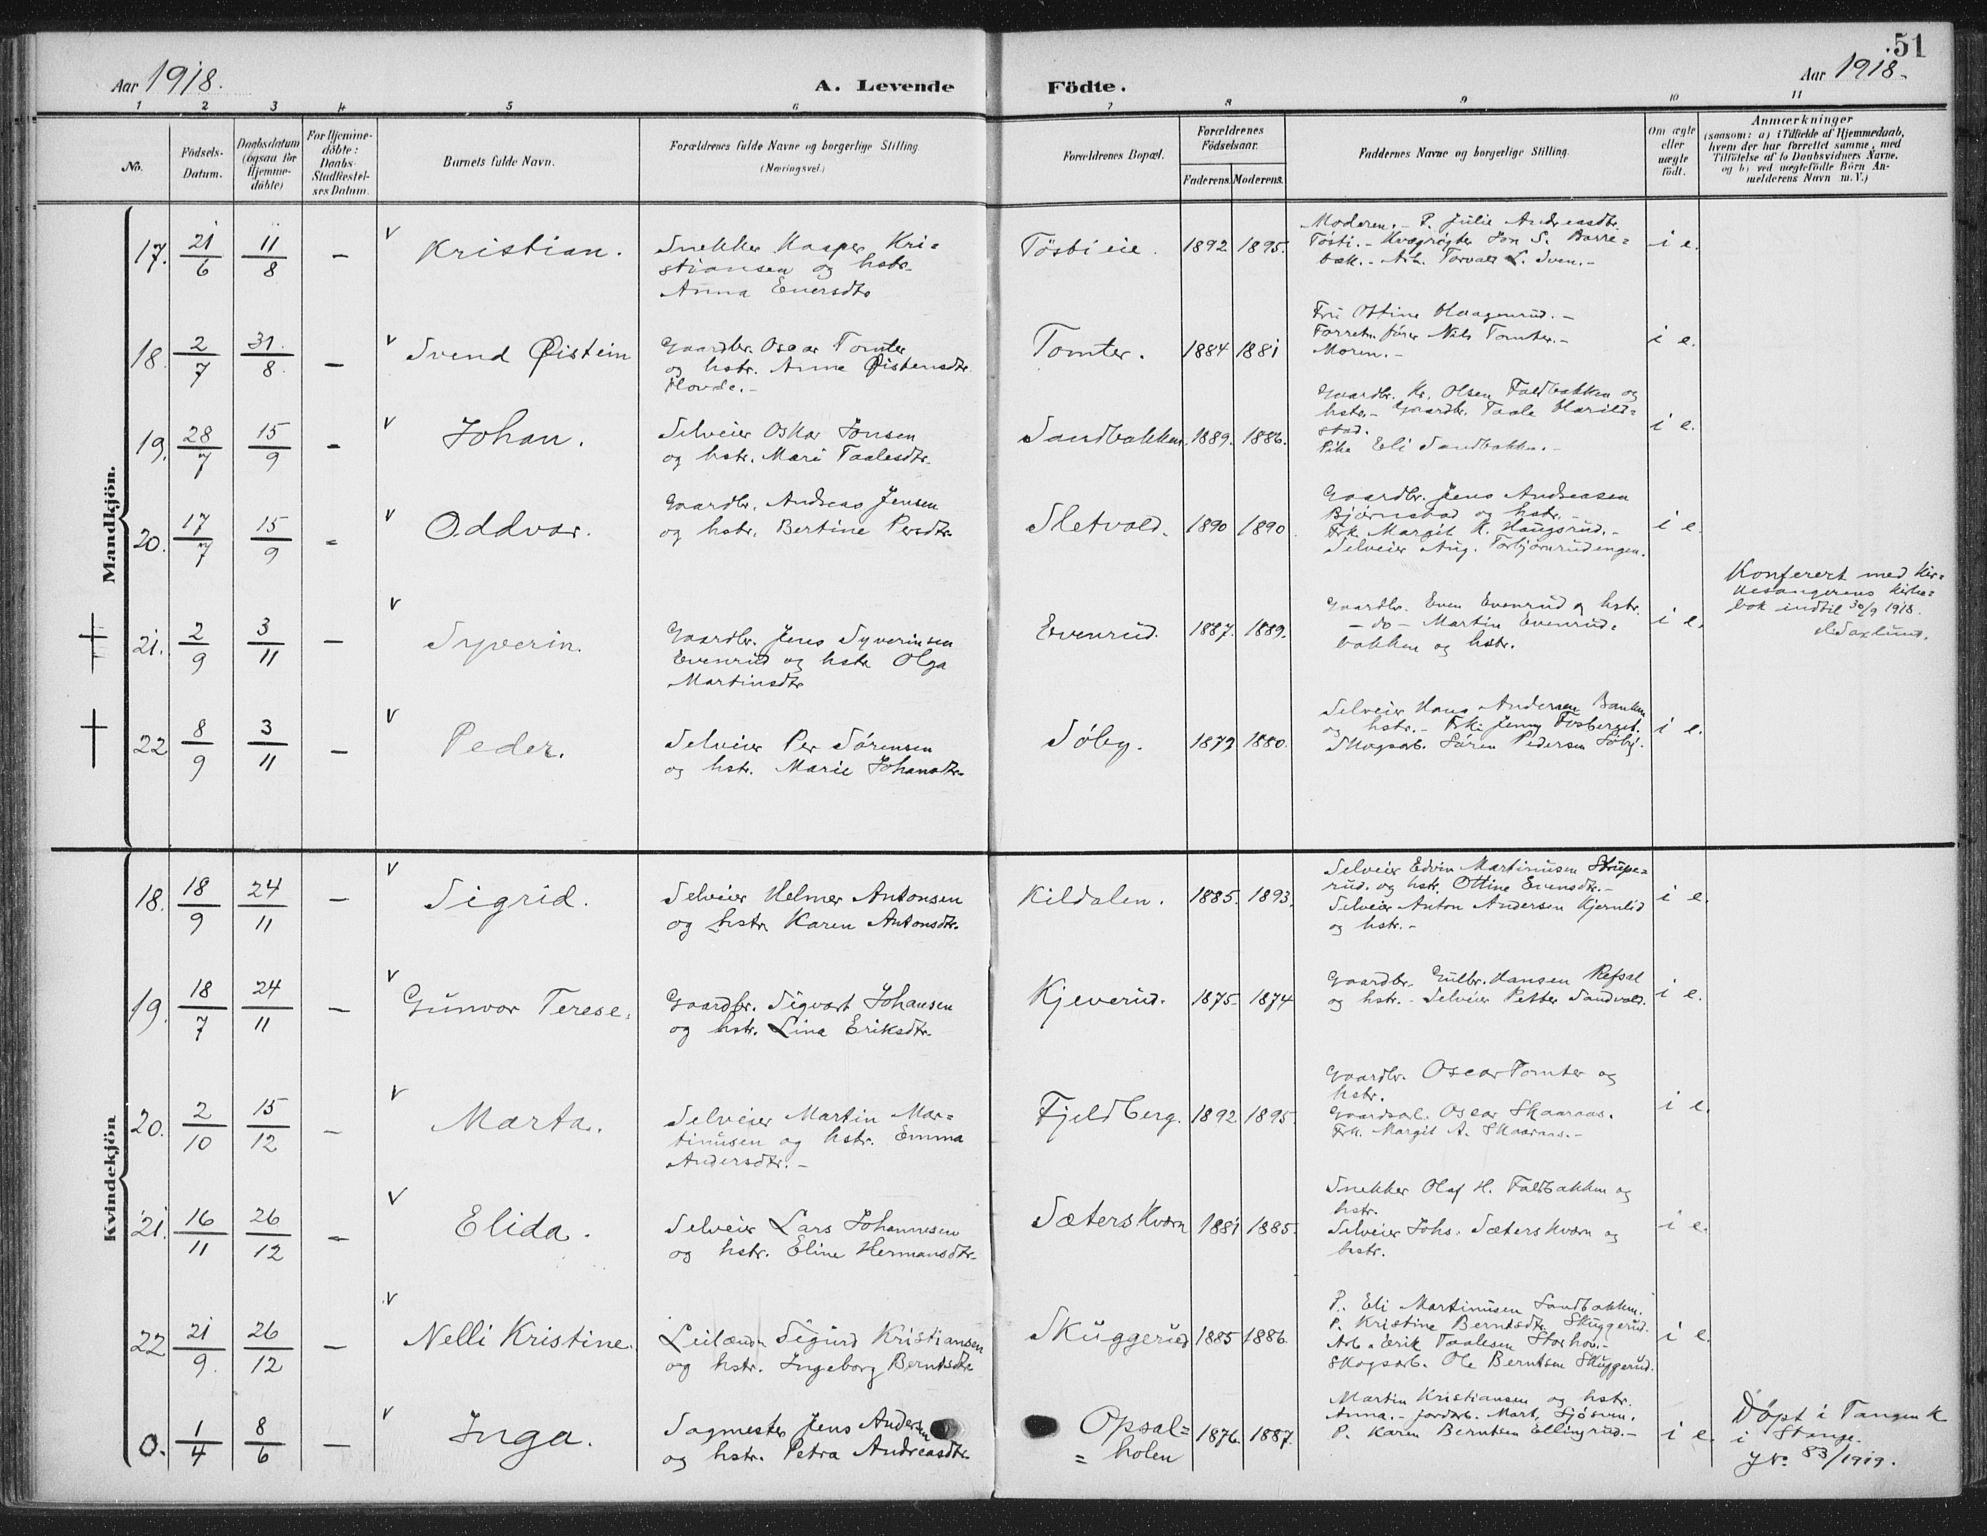 51
Aar 1918.
A. Levende Födte.
Aar 1918.
1 2 3 4 5 6 7 8 9 10 11
No.
Födsels-
Datum.
Daabsdatum
(ogsaa for
Hjemme-
døbte)
For Hjemme-
döbte:
Daabs-
Stadfæstel-
ses Datum.
Barnets fulde Navn.
Forældrenes fulde Navne og borgerlige Stilling
(Næringsvei.)
Forældrenes Bopæl.
Forældrenes
Födselsaar.
Faderens. Moderens.
Faddernes Navne og borgerlige Stilling.
Om ægte
eller
uægte
født.
Anmærkninger
(saasom: a) i Tilfælde af Hjemmedaab,
hvem der har forrettet samme, med
Tilföielse af to Daabsvidners Navne.
og b) ved uægtefödte Börn An-
melderens Navn m. V.)
Mandkjön.
17. 21/6 11/8 – v Kristian.
Snekker Kasper Kri=
stiansen og hstr.
Anna Eversdtr
Tøsbi eie. 1892 1895.
Moderen. – P. Julie Andreasdtr.
Tøsti. – Kvægrøgter Jon S. Barre=
bæk. – Arb. Torvald L. Sven. –
i e.
18. 2/7 31/8. – v Svend Øistein
Gaardbr. Oscar Tomter
og hstr. Anne Øistensdtr.
Hovde. –
Tomter. 1884 1881
Fru Ottine Haagenrud. –
Forretn.fører Nils Tomter. –
Moren. –
i e.
19. 28/7 15/9 – v Johan.
Selveier Oskar Jonsen
og hstr. Mari Taalesdtr.
Sandbakken. 1889. 1886.
Gaardbr. Kr. Olsen Faldbakken og
hstr. – Gaardbr. Taale Harild=
stad.
Pike Eli Sandbakken. –
i e.
20. 17/7 15/9 – v Oddvar.
Gaardbr. Andreas Jensen
og hstr. Bertine Persdtr.
Sletvold. 1890 1890
Gaardbr. Jens Andreasen
Bjørnstad og hstr. –
Frk. Margit K. Haugsrud. –
Selveier Aug. Torbjørnrudengen.
i e.
21. 2/9 3/11 – v Syverin.
Gaardbr. Jens Syverinsen
Evenrud og hstr. Olga
Martinsdtr
Evenrud. 1887. 1889.
Gaardbr. Even Evenrud og hstr.
– do – Martin Evenrud=
bakken og hstr.
i e.
Konferert med Kir=
kesangerens Kirke=
bok indtil 30/9 1918.
Saxlund.
22 8/9 3/11 – v Peder.
Selveier Per Sørensen
og hstr. Marie Johansdtr.
Søby. 1879 1880.
Selveier Hans Andersen Banken
og hstr. – Frk. Jenny Fosberget.
Skogsarb. Søren Pedersen Søby.
i e.
Kvindekjön
18. 18/9 24/11 – v Sigrid.
Selveier Helmer Antonsen
og hstr. Karen Antonsdtr.
Kildalen. 1885. 1893.
Selveier Edvin Martinusen Strupe=
rud. og hstr. Ottine Evensdtr. –
Selveier Anton Andersen Kjernlid
og hstr. –
i e.
19. 18/7 24/11 – v Gunvor Terese.
Gaardbr. Sigvart Johansen
og hstr. Lina Eriksdtr.
Kjeverud. 1875. 1874
Gaardbr. Gulbr. Hansen Refsal
og hstr. – Selveier Petter Sandvold.
i e.
20. 2/10 15/12 – v Marta.
Selveier Martin Mar=
tinusen og hstr. Emma
Andersdtr. –
Fjeldberg. 1892 1895.
Gaardbr. Oscar Tomter og
hstr.
Gaardsarb. Oscar Skaaraas.
Frk. Margit A. Skaaraas. –
i e.
21. 16/11 26/12 – v Elida.
Selveier Lars Johannesen
og hstr. Eline Hermansdtr.
Sæterskværn 1881 1885.
Snekker Olaf H. Faldbakken og
hstr.
Selveier Johs. Sæterskværn og
hstr.
i e.
22 21/9. 26/12 – v Nelli Kristine.
Leilænd. Sigurd Kristiansen
og hstr. Ingeborg Berntsdtr.
Skuggerud 1885 1886.
P. Eli Martinusen Sandbakken.
P. Kristine Berntsdtr. Skuggerud.
Arb. Erik Taalesen Storhov. –
Skogsarb. Ole Berntsen Skuggerud.
i e.
0. 1/4 8/6 – v Inga.
Sagmester Jens Andersen
og hstr. Petra Andreasdtr.
Opsal=
= holen 1876. 1887.
Martin Kristiansen og hstr.
Anna. – jordarb. Mart. Sjøsven.
P. Karen Berntsen Ellingrud. –
i e.
Døpt i Tangen K
i Stange.
J Nr. 83/1919.